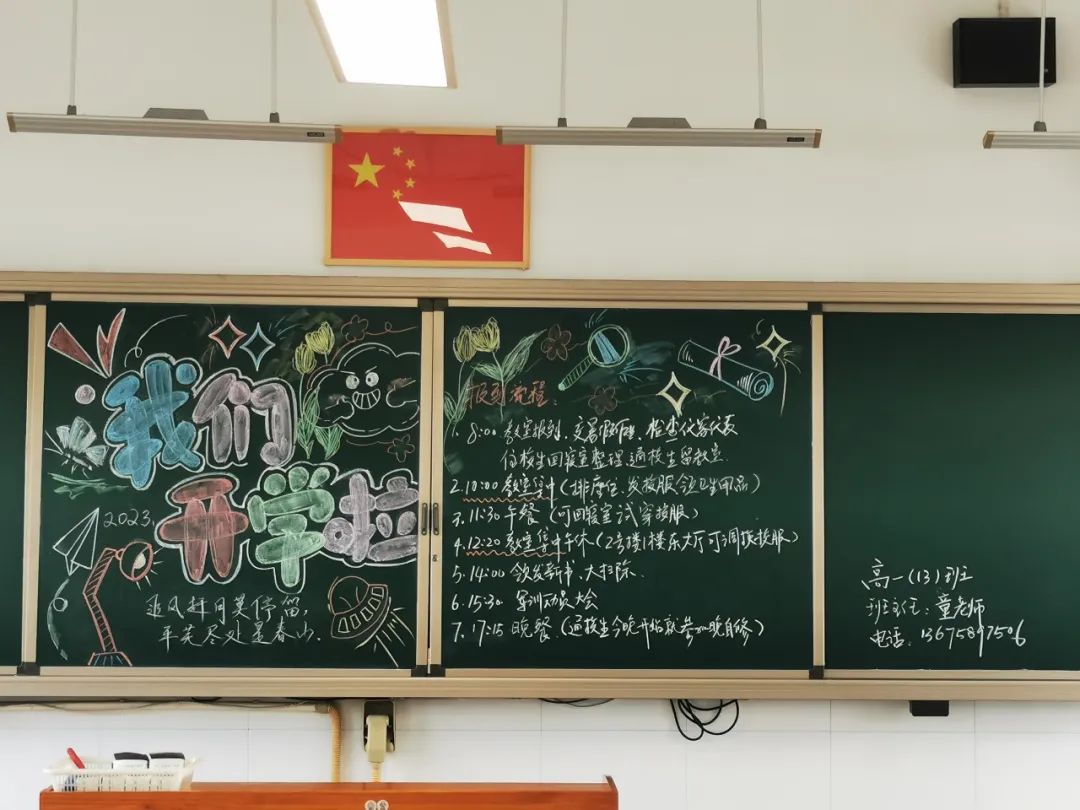 我们
开学啦
2023.
追风赶月莫停留,
平芜尽处是春山.
报到流程:
1. 8:00 教室报到、交暑假作业、检查仪容仪表
住校生回寝室整理,通校生留教室.
2. 10:00 教室集中(排座位、发校服、领卫生用品)
3. 11:30 午餐(可回寝室试穿校服)
4. 12:20 教室集中午休(2号楼1楼乐大厅可调换校服)
5. 14:00 领发新书、大扫除.
6. 15:30 军训动员大会
7. 17:15 晚餐(通校生今晚开始就参加晚自修)
高一(13)班
班主任:童老师
电话: